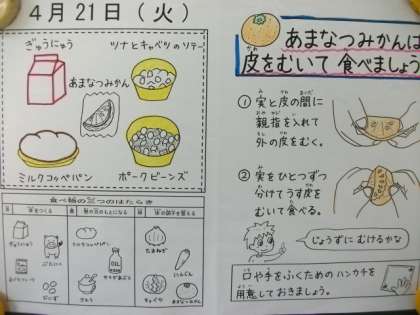 4月21日(火)
ぎゅうにゅう
ツナとキャベツのソテー
あまなつみかん
ミルクコッペパン
ポークビーンズ
食べ物の三つのはたらき
ぎゅうにゅう
ぶたにく
だいず
ミルクコッペパン
さとう
たまねぎ
にんじん
キャベツ
あまなつみかん
あまなつみかんは
皮をむいて食べましょう
① 実と皮の間に
親指を入れて
外の皮をむく。
② 実をひとつずつ
分けてうす皮を
むいて食べる。
じょうずにむけるかな
口や手をふくためのハンカチを
用意しておきましょう。